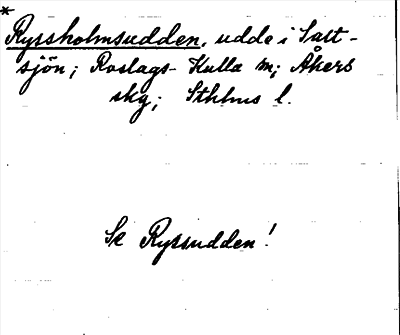 *
Ryssholmsudden, udde i Salt-
sjön; Roslags-Kulla sn; Åkers
skg; Sthlms l.
Se Ryssudden!